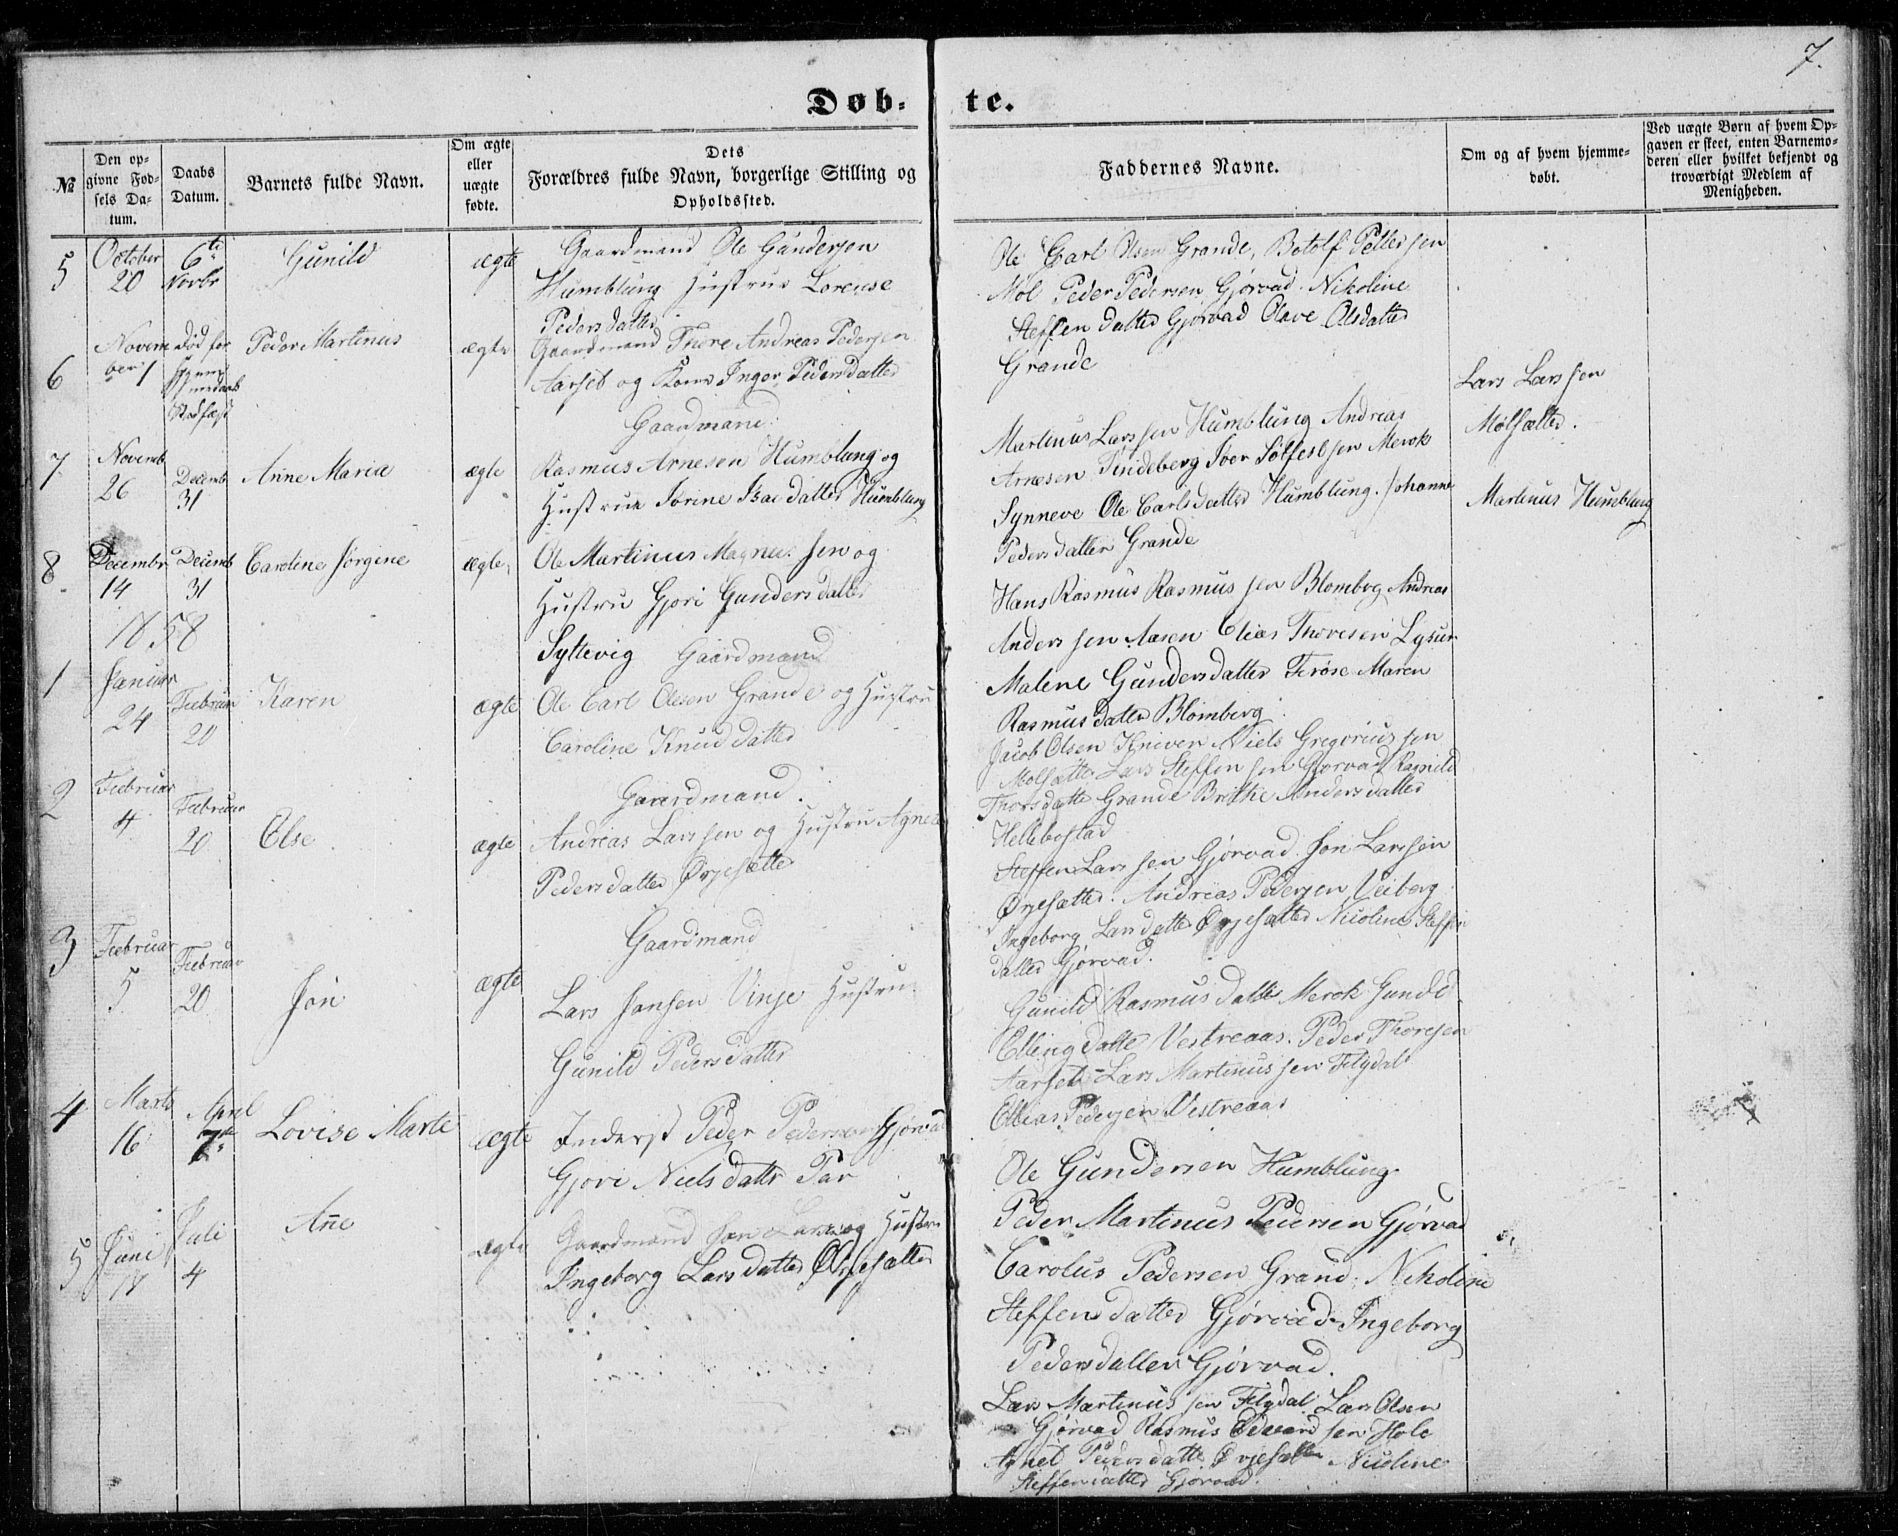 7.
Døb- te.
№
Den op-
givne Fød-
sels Da-
tum.
Daabs
Datum.
Barnets fulde Navn.
Om ægte
eller
uægte
fødte.
Dets
Forældres fulde Navn, borgerlige Stilling og
Opholdssted.
Faddernes Navne.
Om og af hvem hjemme-
døbt.
Ved uægte Børn af hvem Op-
gaven er skeet, enten Barnemo-
deren eller hvilket bekjendt og
troværdigt Medlem af
Menigheden.
5
October
20
6te
Novbr
Gunild
ægte
Gaardmand Ole Gundersen
Humblung Hustrue Lorense
Pedersdatter
Ole Carl Olsen Grande, Botolf Pettersen
Mol Peder Pedersen Gjørvad. Nikoline
Steffendatter Gjørvad Olave Olsdatter
Grande
6
Novem
ber 1
død før
Stadfæst
Peder Martinus
ægte
Gaardmand Thore Andreas Pedersen
Aarset og Kone Inger Pedersdatter
Lars Larssen
Mølsætter.
7
Novemb
26
Decemb
31
Anne Maria
ægte
Gaardmand
Rasmus Arnesen Humblung og
Hustrue Jørine Isacdatter Humblung
Martinus Larssen Humblung Andreas
Arnesen Tindeberg Iver Sølfestsen Merok
Synneve Ole Carlsdatter Humblung. Johanne
Pedersdatter Grande
Martinus Humblung
8
Decembr
14
Decemb
31
Caroline Jørgine
ægte
Ole Martinus Magnussen og
Hustru Gjøri Gundersdatter
Syltevig
Hans Rasmus Rasmussen Blombeg Andreas
Anderssen Aasen Elias Thoresen Lysur
Malene Gundersdatter Ferøse Maren
Rasmusdatter Blomberg
1858
1
Januar
24
Februar
20
Karen
ægte
Gaardmand
Ole Carl Olesen Grande og Hustru
Caroline Knuddatter
Jacob Olsen Hniven Niels Gregoriussen
Molsætter Lars Steffensen Gjørvad Ragnild
Thorsdatter Grande Brithe Andersdatter
Hellebostad
2
Februar
4
Februar
20
Else
ægte
Gaardmand.
Andreas Larssen og Hustru Agnet
Pedersdatter Ørjesætter
Steffen Larssen Gjørvad. Jon Larssen
Ørjesætter. Andreas Pedersen Veiberg
Ingeborg Larsdatter Ørjesætter Nicoline Steffen
datter Gjørvad.
3
Februar
5
Februar
20
Jon
ægte
Gaardmand
Lars Jonsen Vinje Hustru
Gunild Pedersdatter
Gunild Rasmusdatter Merok Gunild
Ellingdatter Vestreaas. Peder Thoresen
Aarset - Lars Martinussen Flydal
Ellias Pedersen Vestreaas
4
Marts
16
April
7de
Lovise Marte
ægte
Inderst Peder Pedersen Gjørvad
Gjøri Nielsdatter Par
Ole Gundersen Humblung.
Peder Martinus Pedersen Gjørvad
Carolus Pedersen Grand. Nikoline
Steffensdatter Gjørvad. Ingeborg
Pedersdatter Gjørvad.
5
Juni
17
Juli
4
Anne
ægte
Gaardmand Jon Lars. og Hustru
Ingeborg Larsdatter Ørjesætter
Lars Martinussen Flydal Lars Olsen
Gjørvad Rasmus Edvardsen Hole
Agnet Pedersdatter Ørjesætter Nicoline
Steffensdatter Gjørvad.